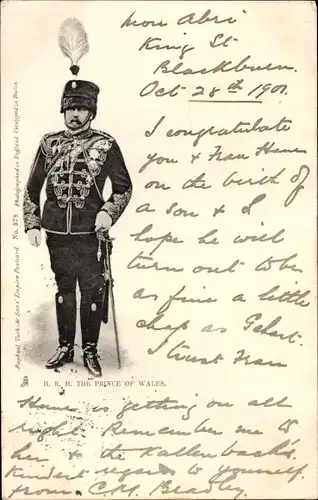 Mon Abri
King St
Blackburn.
Oct 28th 1901.
I congratulate
you & Frau Hans
on the birth of
a son & I
hope he will
turn out to be
as fine a little
chap as
I trust Frau
Hans is getting on all
right. Remember me to
her & the Kallenbach's.
Kindest regards to yourself
from C.M. Beasley
H. R. H. THE PRINCE OF WALES.
Raphael Tuck & Sons' Empire Postcard No. 379 Photographed in England Collotyped in Berlin.